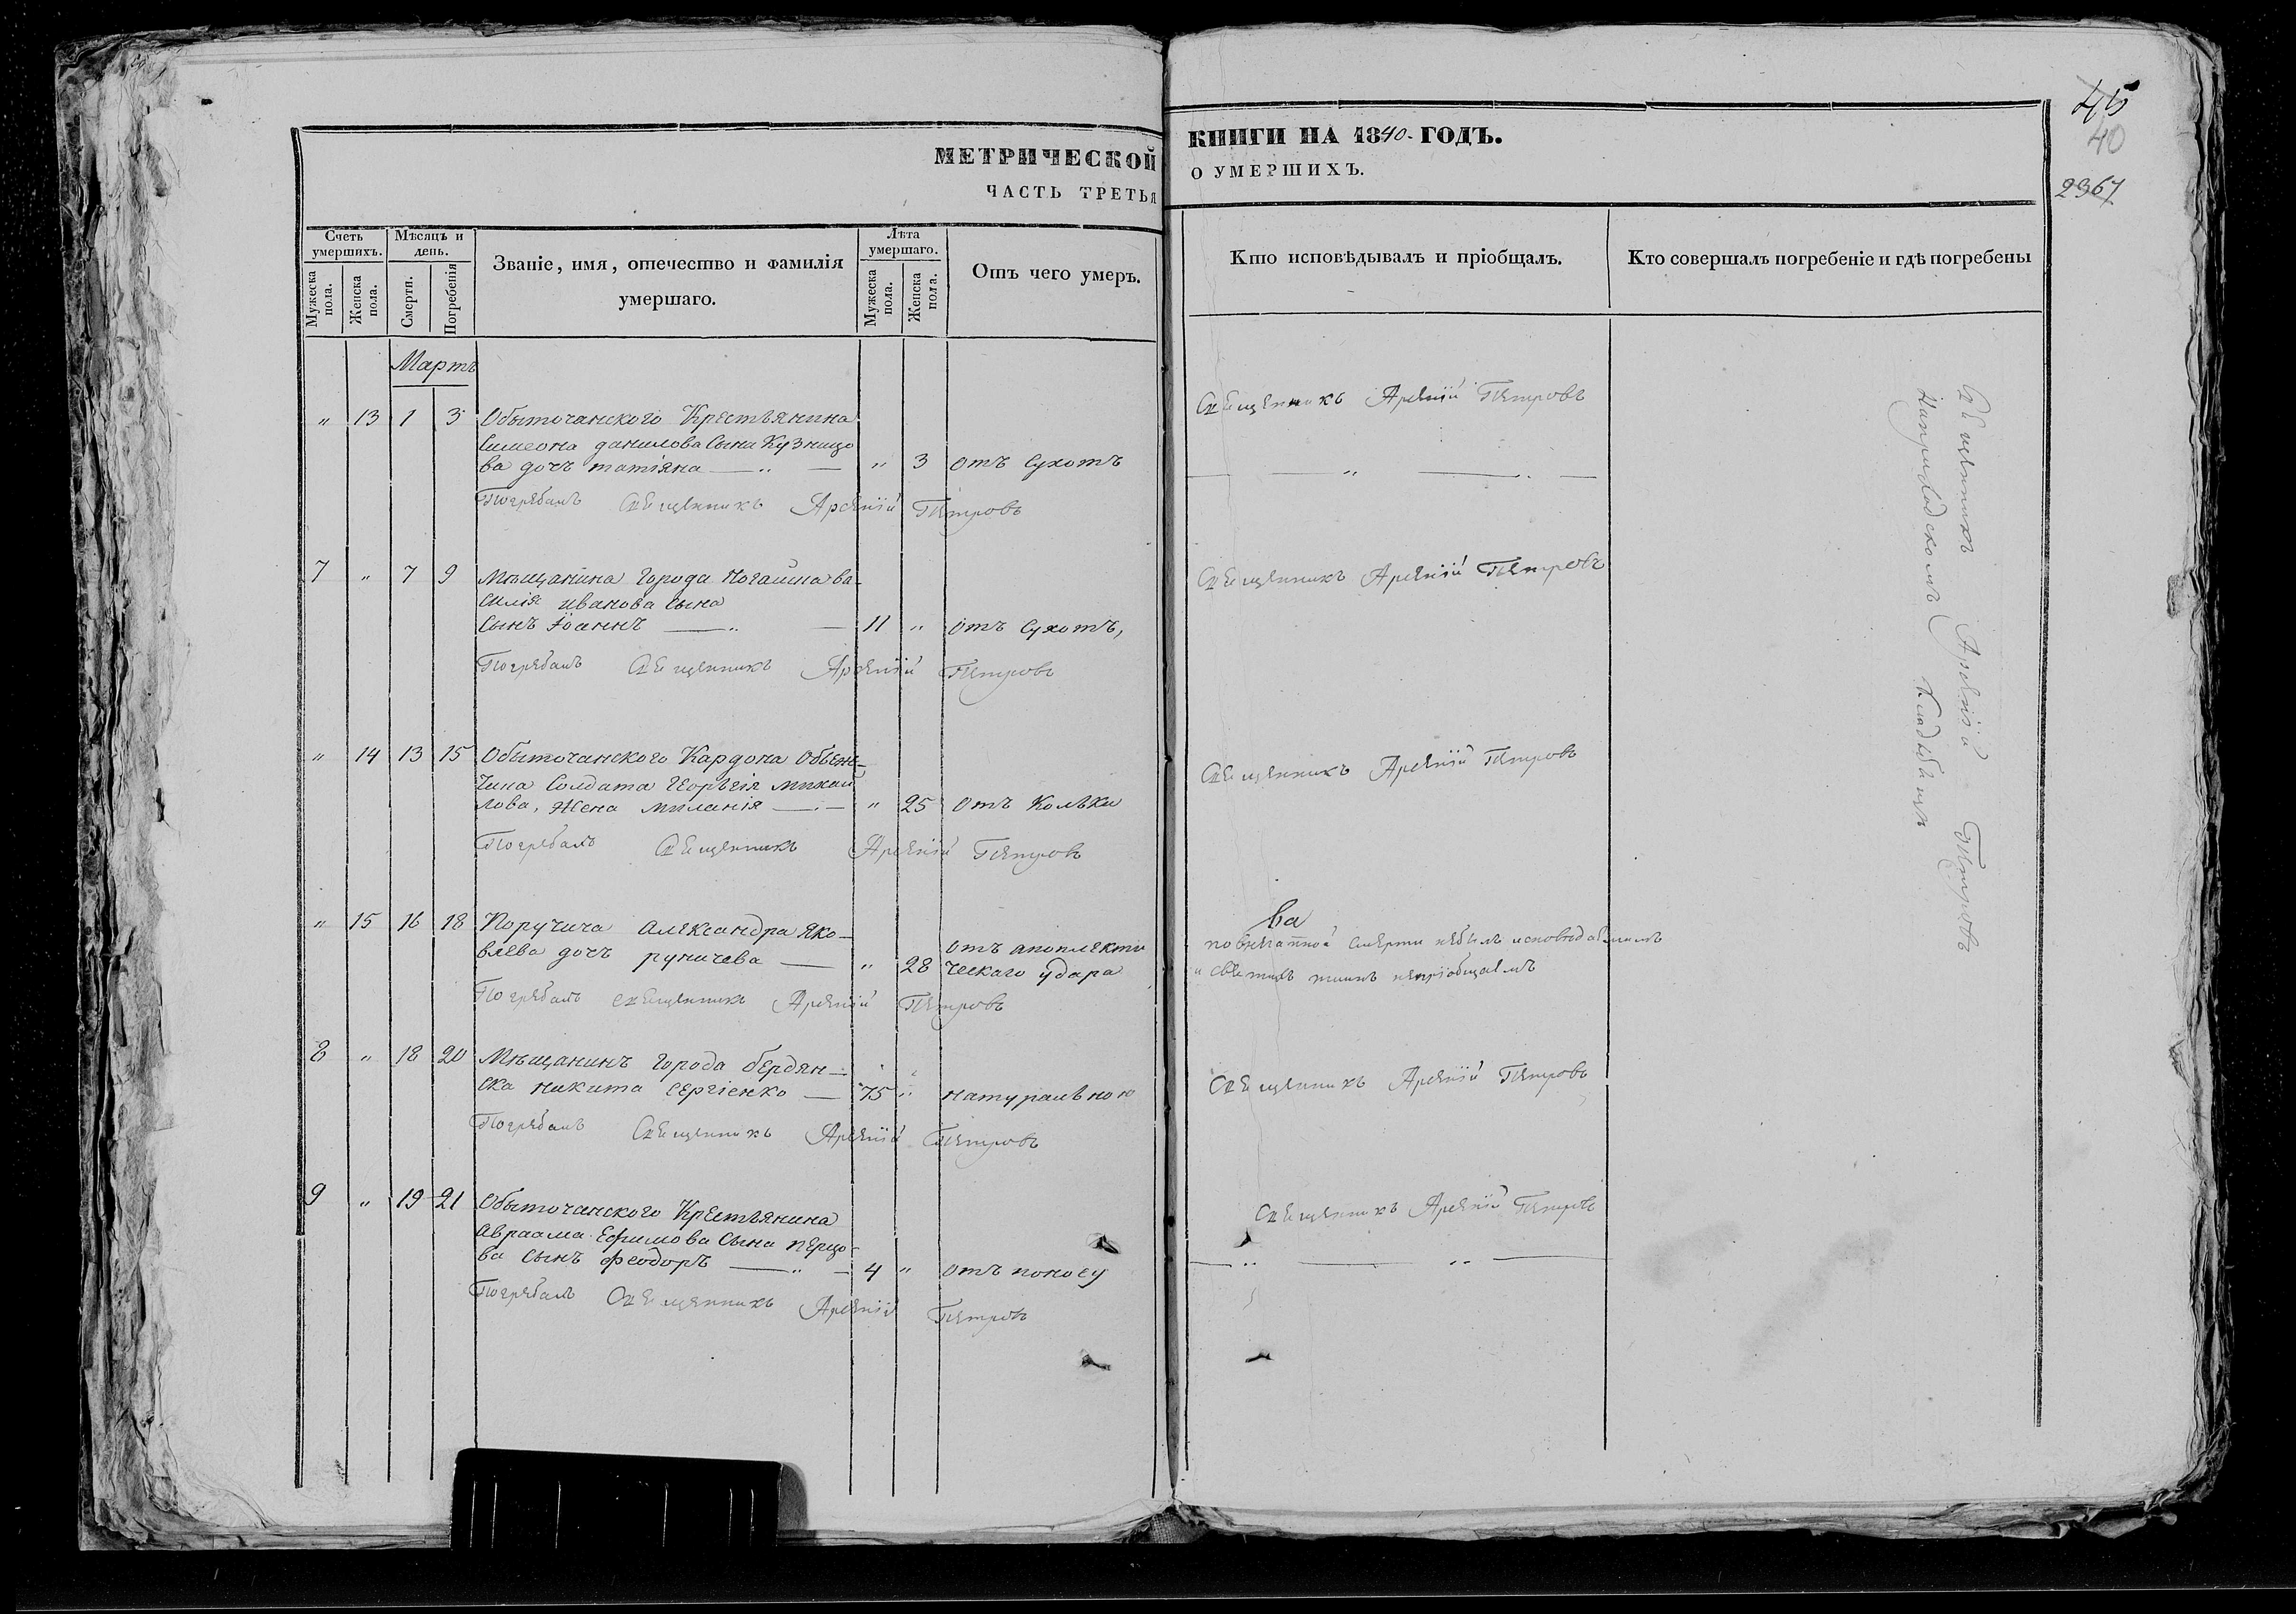 МЕТРИЧЕСКОЙ
ЧАСТЬ ТРЕТЬЯ
Счетъ умершихъ.
Мѣсяцъ и день.
Званіе, имя, отечество и фамилія
умершаго.
Лѣта умершаго.
Отъ чего умеръ.
Мужеска пола.
Женска пола.
Смерти.
Погребенія
Мужеска пола.
Женска пола.
Мартъ
" 13 1 3 Обыточанского Крестьянина
Симеона данилова Сына Кузницо
ва дочъ татіяна — " — " 3 отъ Сухотъ
Погребалъ Священникъ Арсеній Петровъ
7 " 7 9 Мѣщанина Города Ногайска ва-
силія иванова Сына
Сынъ Іоаннъ — " — 11 " отъ Сухотъ,
Погребалъ Священникъ Арсеній Петровъ
" 14 13 15 Обыточанского Кардона Объез-
чика Солдата Георгія михаи
лова, Жена миланія — " — " 25 отъ Колѣки
Погребалъ Священникъ Арсеній Петровъ
" 15 16 18 Поручича Александра Яко-
влева дочъ руничева — " 28 отъ апоплекти
ческаго удара
Погребалъ священникъ Арсеній Петровъ
8 " 18 20 Мѣщанинъ Города бердян-
ска никита сергіенко — 75 " натуральною
Погребалъ Священникъ Арсеній Петровъ
9 " 19 21 Обыточанского Крестьянина
Авраама Ефимова Сына перцо
ва Сынъ феодоръ — " — 4 " отъ поносу
Погребалъ Священникъ Арсеній Петровъ
45
40
2367
КНИГИ НА 1840- ГОДЪ.
О УМЕРШИХЪ.
Кто исповѣдывалъ и пріобщалъ.
Кто совершалъ погребеніе и гдѣ погребены
Священникъ Арсеній Петровъ
— " — " —
Священникъ Арсеній Петровъ
Священникъ Арсеній Петровъ
ва
по внезапной смерти небылъ исповѣдываемъ
и светихъ таинъ непріобщаемъ
Священникъ Арсеній Петровъ
Священникъ Арсеній Петровъ
— " — " —
Священникъ Арсеній Петровъ
Наприходскомъ Кладбище